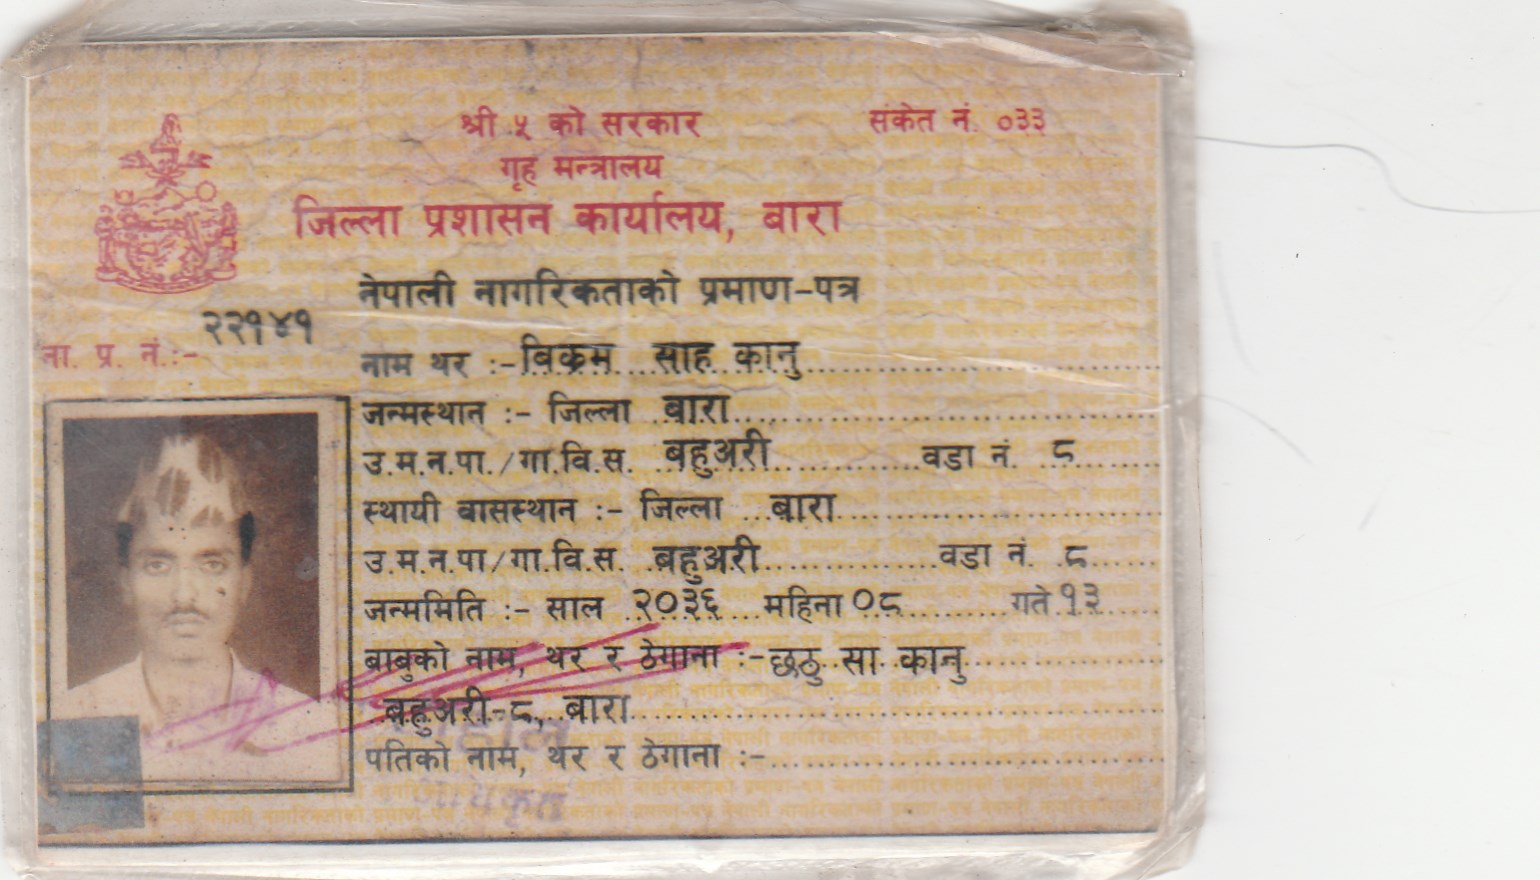 श्री ५ को सरकार
संकेत नं. ०३३
गृह मन्त्रालय
जिल्ला प्रशासन कार्यालय, बारा
नेपाली नागरिकताको प्रमाण-पत्र
ना. प्र. नं.:- २२१४१
नाम थर :- बिक्रम साह कानु
जन्मस्थान :- जिल्ला बारा
उ.म.न.पा./गा.वि.स. बहुअरी वडा नं. ८
स्थायी बासस्थान :- जिल्ला बारा
उ.म.न.पा/गा.वि.स. बहुअरी वडा नं. ८
जन्ममिति :- साल २०३६ महिना ०८ गते १३
बाबुको नाम, थर र ठेगाना :- छठु सा कानु
बहुअरी-८, बारा
पतिको नाम, थर र ठेगाना :-